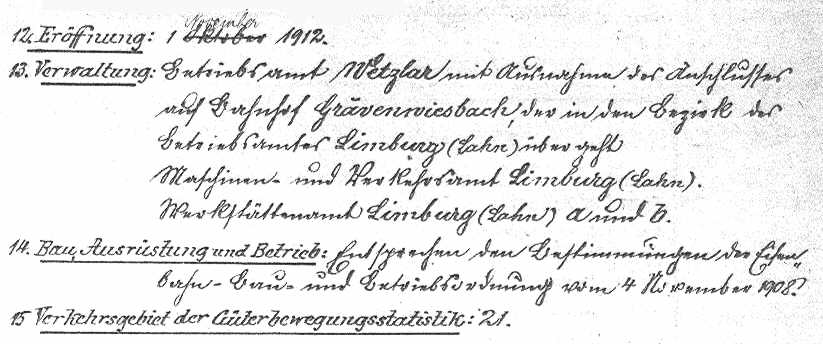 November
12. Eröffnung: 1 Oktober 1912.
13. Verwaltung: Betriebsamt Wetzlar mit Ausnahme des Anschlusses
auf Bahnhof Grävenwiesbach, der in den Bezirk des
Betriebsamtes Limburg (Lahn) über geht
Maschinen- und Verkehrsamt Limburg (Lahn).
Werkstättenamt Limburg (Lahn) a und b.
14. Bau, Ausrüstung und Betrieb: Entsprechen den Bestimmungen der Eisen„
bahn- Bau- und Betriebsordnung vom 4 November 1908.
15 Verkehrsgebiet der Güterbewegungsstatistik: 21.